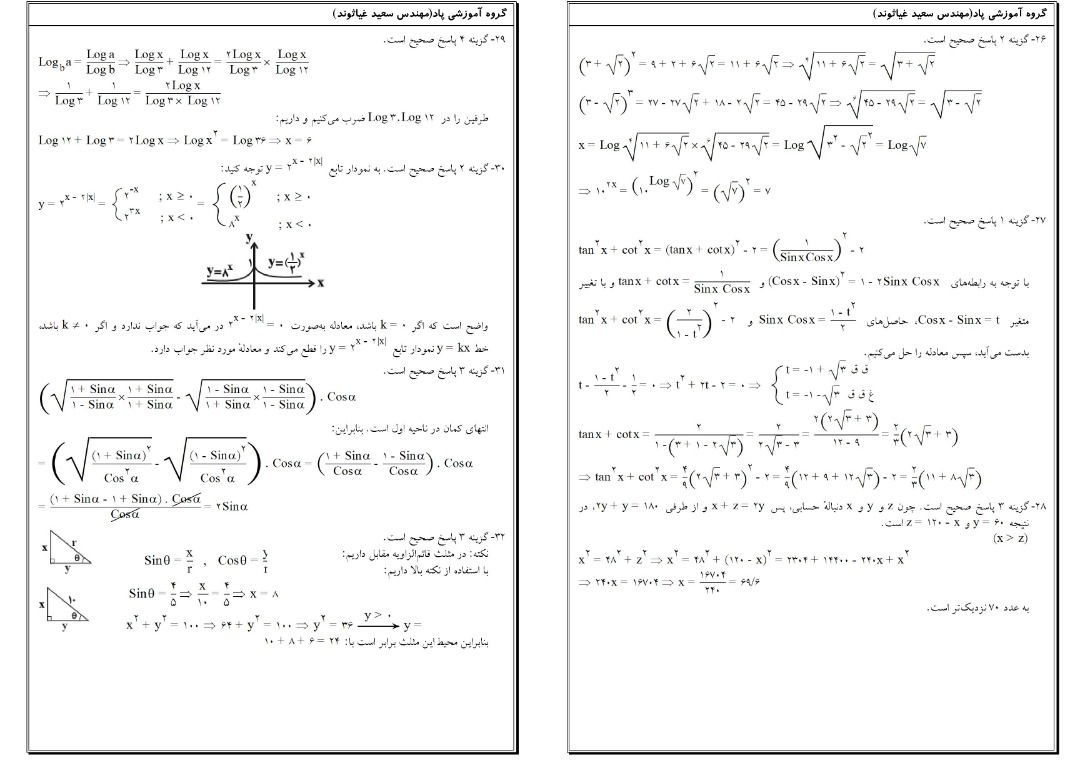 گروه آموزشی پاد(مهندس سعید غیاثوند)
۲۶- گزینه ۲ پاسخ صحیح است.
(۳ + √۲)^۲ = ۹ + ۲ + ۶√۲ = ۱۱ + ۶√۲ ⇒ ⁴√(۱۱ + ۶√۲) = √(۳ + √۲)
(۳ - √۲)^۳ = ۲۷ - ۲۷√۲ + ۱۸ - ۲√۲ = ۴۵ - ۲۹√۲ ⇒ ⁶√(۴۵ - ۲۹√۲) = √(۳ - √۲)
x = Log ⁴√(۱۱ + ۶√۲) × ⁶√(۴۵ - ۲۹√۲) = Log √(۳^۲ - √۲^۲) = Log√۷
⇒ ۱۰^۲x = (۱۰^Log √۷)^۲ = (√۷)^۲ = ۷
۲۷- گزینه ۱ پاسخ صحیح است.
tan^۲ x + cot^۲ x = (tan x + cot x)^۲ - ۲ = (۱/(Sin x Cos x))^۲ - ۲
با توجه به رابطه‌های (Cosx - Sinx)^۲ = ۱ - ۲Sinx Cosx و tan x + cot x = ۱/(Sin x Cos x) و با تغییر
متغیر Cosx - Sinx = t، حاصل‌های Sinx Cosx = (۱ - t^۲)/۲ و tan^۲ x + cot^۲ x = (۲/(۱ - t^۲))^۲ - ۲
بدست می‌آید، سپس معادله را حل می‌کنیم.
t - (۱ - t^۲)/۲ - ۱/۲ = ۰ ⇒ t^۲ + ۲t - ۲ = ۰ ⇒ { t = -۱ + √۳ ق ق
t = -۱ - √۳ غ ق ق
tan x + cot x = ۲/(۱ - (۳ + ۱ - ۲√۳)) = ۲/(۲√۳ - ۳) = ۲(۲√۳ + ۳)/(۱۲ - ۹) = ۲/۳ (۲√۳ + ۳)
⇒ tan^۲ x + cot^۲ x = ۴/۹ (۲√۳ + ۳)^۲ - ۲ = ۴/۹ (۱۲ + ۹ + ۱۲√۳) - ۲ = ۲/۳ (۱۱ + ۸√۳)
۲۸- گزینه ۳ پاسخ صحیح است. چون z و y و x دنبالهٔ حسابی، پس x + z = ۲y و از طرفی ۲y + y = ۱۸۰، در
نتیجه y = ۶۰ و z = ۱۲۰ - x است.
(x > z)
x^۲ = ۴۸^۲ + z^۲ ⇒ x^۲ = ۴۸^۲ + (۱۲۰ - x)^۲ = ۲۳۰۴ + ۱۴۴۰۰ - ۲۴۰x + x^۲
⇒ ۲۴۰x = ۱۶۷۰۴ ⇒ x = ۱۶۷۰۴/۲۴۰ = ۶۹/۶
به عدد ۷۰ نزدیک‌تر است.
گروه آموزشی پاد(مهندس سعید غیاثوند)
۲۹- گزینه ۴ پاسخ صحیح است.
Log_b a = Log a/Log b ⇒ Log x/Log ۳ + Log x/Log ۱۲ = ۲Log x/Log ۳ × Log x/Log ۱۲
⇒ ۱/Log ۳ + ۱/Log ۱۲ = ۲Log x/(Log ۳ × Log ۱۲)
طرفین را در Log ۳.Log ۱۲ ضرب می‌کنیم و داریم:
Log ۱۲ + Log ۳ = ۲Log x ⇒ Log x^۲ = Log ۳۶ ⇒ x = ۶
۳۰- گزینه ۲ پاسخ صحیح است. به نمودار تابع y = ۲^(x - ۲|x|) توجه کنید:
y = ۲^(x - ۲|x|) = { ۲^-x ; x ≥ ۰ = { (۱/۲)^x ; x ≥ ۰
۲^۳x ; x < ۰ ۸^x ; x < ۰
y
y=۸^x ۱ y=(۱/۲)^x
x
واضح است که اگر k = ۰ باشد، معادله به‌صورت ۲^(x - ۲|x|) = ۰ در می‌آید که جواب ندارد و اگر k ≠ ۰ باشد،
خط y = kx نمودار تابع y = ۲^(x - ۲|x|) را قطع می‌کند و معادلهٔ مورد نظر جواب دارد.
۳۱- گزینه ۳ پاسخ صحیح است.
(√((۱ + Sinα)/(۱ - Sinα) × (۱ + Sinα)/(۱ + Sinα)) - √((۱ - Sinα)/(۱ + Sinα) × (۱ - Sinα)/(۱ - Sinα))) . Cosα
انتهای کمان در ناحیه اول است. بنابراین:
= (√((۱ + Sinα)^۲/Cos^۲α) - √((۱ - Sinα)^۲/Cos^۲α)) . Cosα = ((۱ + Sinα)/Cosα - (۱ - Sinα)/Cosα) . Cosα
= (۱ + Sinα - ۱ + Sinα) . Cosα/Cosα = ۲Sinα
۳۲- گزینه ۳ پاسخ صحیح است.
نکته: در مثلث قائم‌الزاویه مقابل داریم:
Sinθ = x/r , Cosθ = y/r
x r θ y
با استفاده از نکته بالا داریم:
Sinθ = ۴/۵ ⇒ x/۱۰ = ۴/۵ ⇒ x = ۸
x ۱۰ θ y
x^۲ + y^۲ = ۱۰۰ ⇒ ۶۴ + y^۲ = ۱۰۰ ⇒ y^۲ = ۳۶ y > ۰ → y =
بنابراین محیط این مثلث برابر است با: ۱۰ + ۸ + ۶ = ۲۴